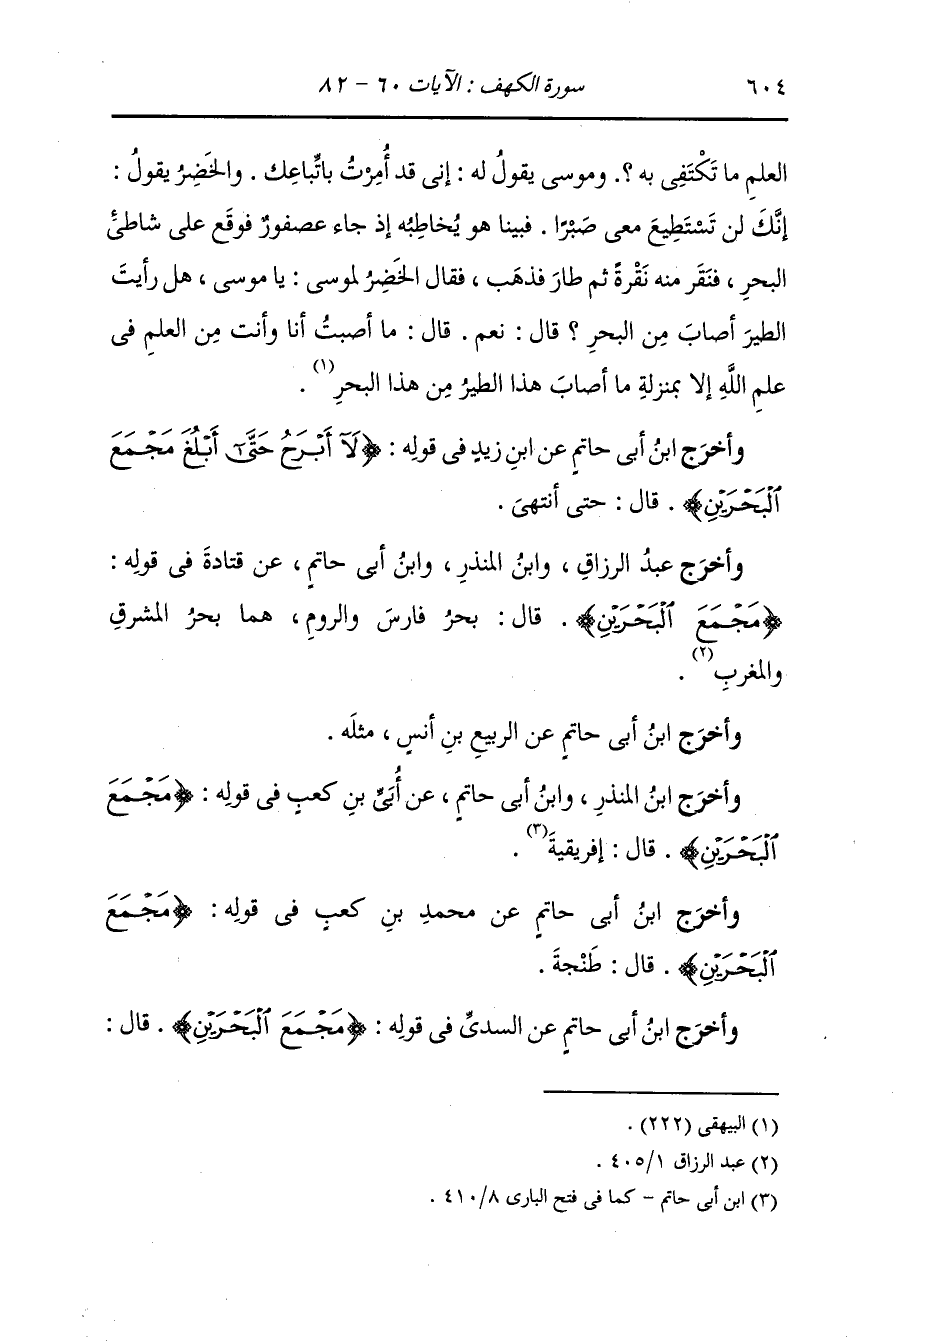 ٦٠٤ سورة الكهف : الآيات ٦٠ - ٨٢
العلمِ ما تَكْتَفِى به ؟. وموسى يقولُ له : إنى قد أُمِرْتُ باتِّباعِك . والخَضِرُ يقولُ :
إنَّكَ لن تَسْتَطِيعَ معى صَبْرًا . فبينا هو يُخاطِبُه إذ جاء عصفورٌ فوقَع على شاطئَ
البحرِ ، فنَقَر منه نَقْرةً ثم طارَ فذهَب ، فقال الخَضِرُ لموسى : يا موسى ، هل رأيتَ
الطيرَ أصابَ مِن البحرِ ؟ قال : نعم . قال : ما أصبتُ أنا وأنت مِن العلمِ فى
علمِ اللَّهِ إلا بمنزلةِ ما أصابَ هذا الطيرُ مِن هذا البحرِ(١) .
وأخرَج ابنُ أبى حاتمٍ عن ابنِ زيدٍ فى قولِه : ﴿لَآ أَبْرَحُ حَتَّىٰٓ أَبْلُغَ مَجْمَعَ
ٱلْبَحْرَيْنِ﴾ . قال : حتى أنتهىَ .
وأخرَج عبدُ الرزاقِ ، وابنُ المنذرِ ، وابنُ أبى حاتمٍ ، عن قتادةَ فى قولِه :
﴿مَجْمَعَ ٱلْبَحْرَيْنِ﴾ . قال : بحرُ فارسَ والرومِ ، هما بحرُ المشرقِ
والمغربِ(٢) .
وأخرَج ابنُ أبى حاتمٍ عن الربيعِ بنِ أنسٍ ، مثلَه .
وأخرَج ابنُ المنذرِ ، وابنُ أبى حاتمٍ ، عن أُبَىِّ بنِ كعبٍ فى قولِه : ﴿مَجْمَعَ
ٱلْبَحْرَيْنِ﴾ . قال : إفريقيةَ(٣) .
وأخرَج ابنُ أبى حاتمٍ عن محمدِ بنِ كعبٍ فى قولِه : ﴿مَجْمَعَ
ٱلْبَحْرَيْنِ﴾ . قال : طَنْجةَ .
وأخرَج ابنُ أبى حاتمٍ عن السدىِّ فى قولِه : ﴿مَجْمَعَ ٱلْبَحْرَيْنِ﴾ . قال :
(١) البيهقى (٢٢٢) .
(٢) عبد الرزاق ١/ ٤٠٥ .
(٣) ابن أبى حاتم - كما فى فتح البارى ٨/ ٤١٠ .